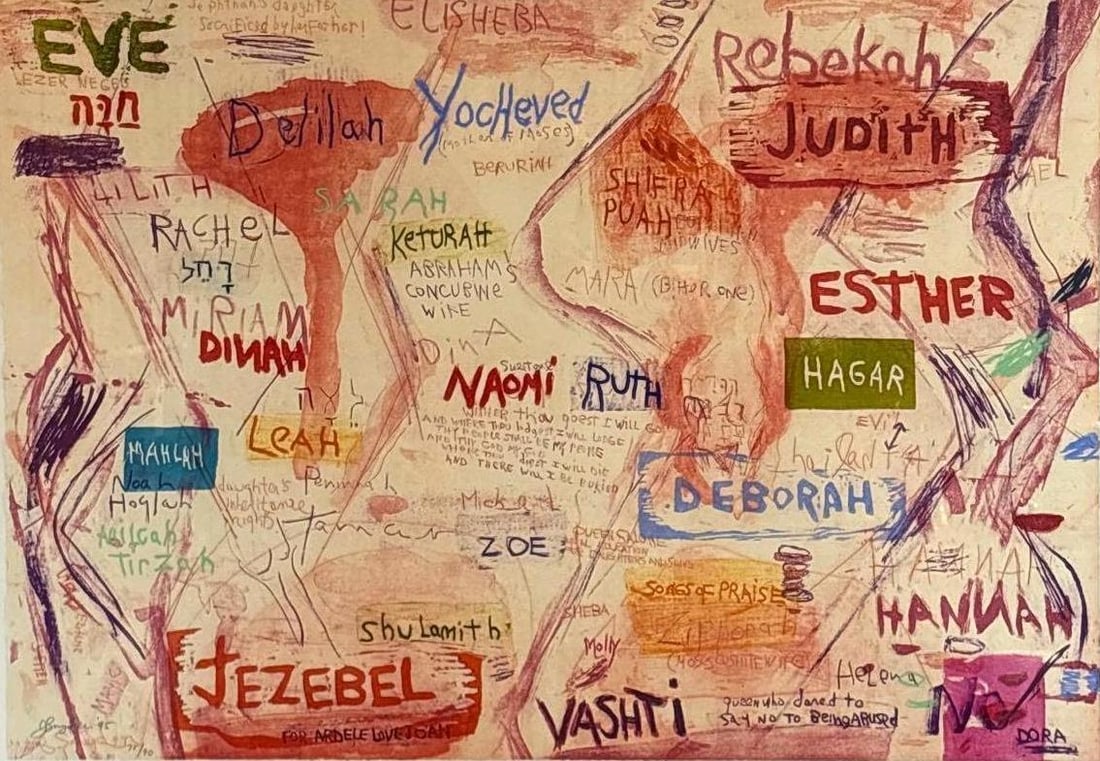 Jephthah's daughter
Sacrificed by her Father!
ELISHEBA
EVE
EZER NEGED
חַוָּה
Delilah
Yocheved
(Mother of Moses)
BERURIAH
Rebekah
JUDITH
LILITH
SARAH
RACHEL
רָחֵל
KETURAH
ABRAHAMS
CONCUBINE
WIFE
SHIFRA
PUAH
MIDWIVES
MARA (Bitter one)
ESTHER
MIRIAM
DINAH
DINA
NAOMi
RUTH
HAGAR
WHITHER thou goest I will go
AND WHERE THOU lodgest I WILL LODGE
THY PEOPLE SHALL BE MY PEOPLE
AND THY GOD MY GOD
WHERE THOU diest I WILL DIE
AND THERE WILL I BE BURIED
לאה
LEAH
EVIT
MAHLAH
Noah
Hoglah
Milcah
Tirzah
daughter's
inheritance
rights
Peninnah
Tamar
Michal
ZOE
DEBORAH
SONGS OF PRAISE
Zipporah
(MOSES CUSHITE WIFE)
HANNAH
HANNAH
SHEBA
Molly
Shulamith
JEZEBEL
FOR ARDELE LOVE JOAN
VASHTi
queen who dared to
SAY NO TO BeingABUSED
Helena
DORA